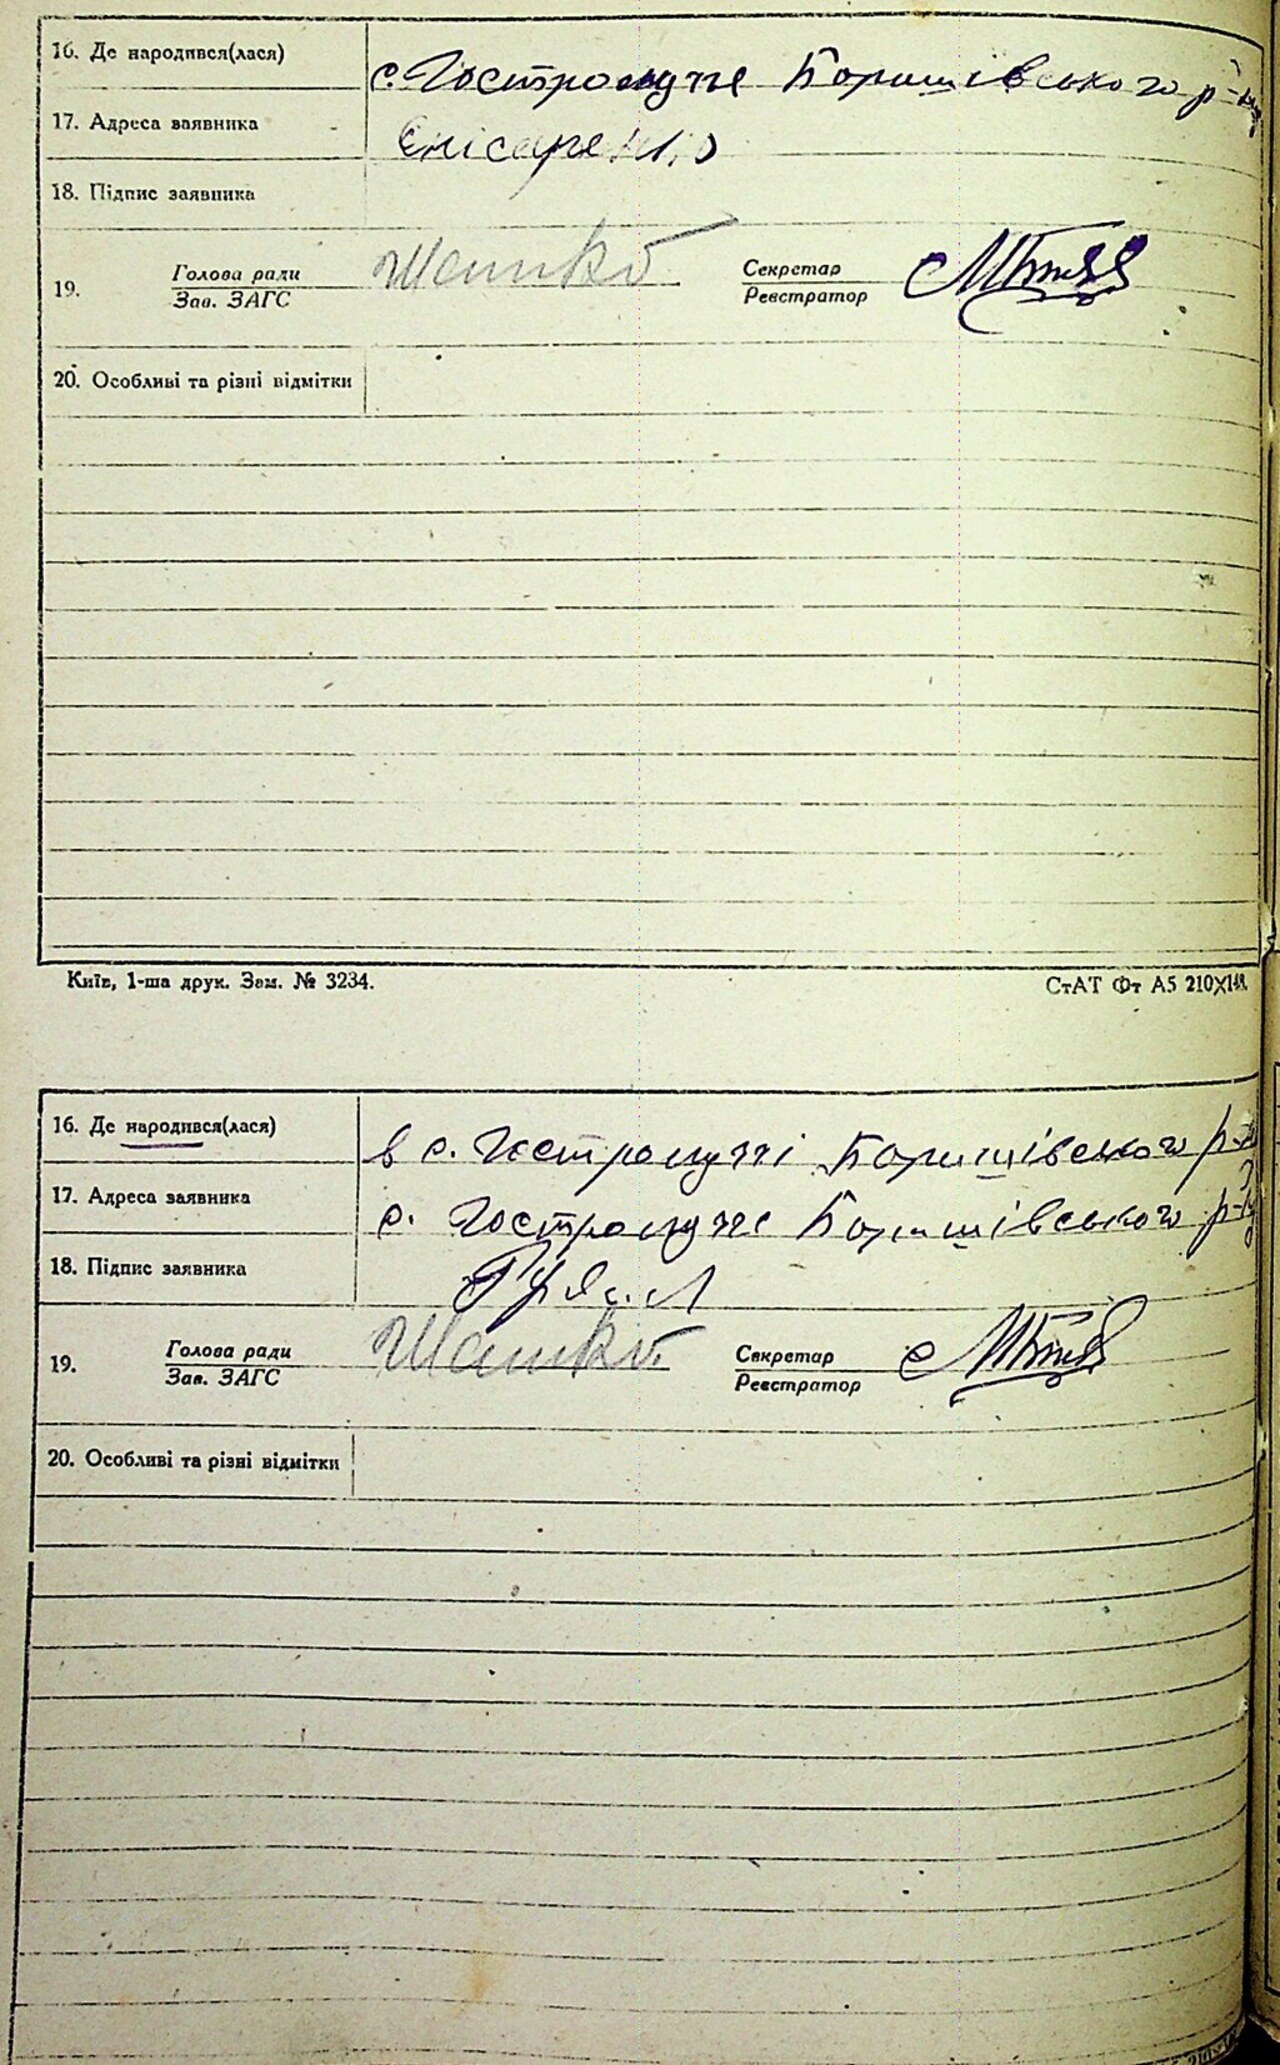 16. Де народився(лася)
с. Гостролуччя Баришівського р-ну
17. Адреса заявника
18. Підпис заявника
19.
Голова ради
Зав. ЗАГС
Секретар
Реєстратор
20. Особливі та різні відмітки
Київ, 1-ша друк. Зам. № 3234.
СтАТ Фт А5 210X148.
16. Де народився(лася)
в с. Гостролуччі Баришівського р-ну
17. Адреса заявника
с. Гостролуччє Баришівського р-ну
18. Підпис заявника
19.
Голова ради
Зав. ЗАГС
Секретар
Реєстратор
20. Особливі та різні відмітки